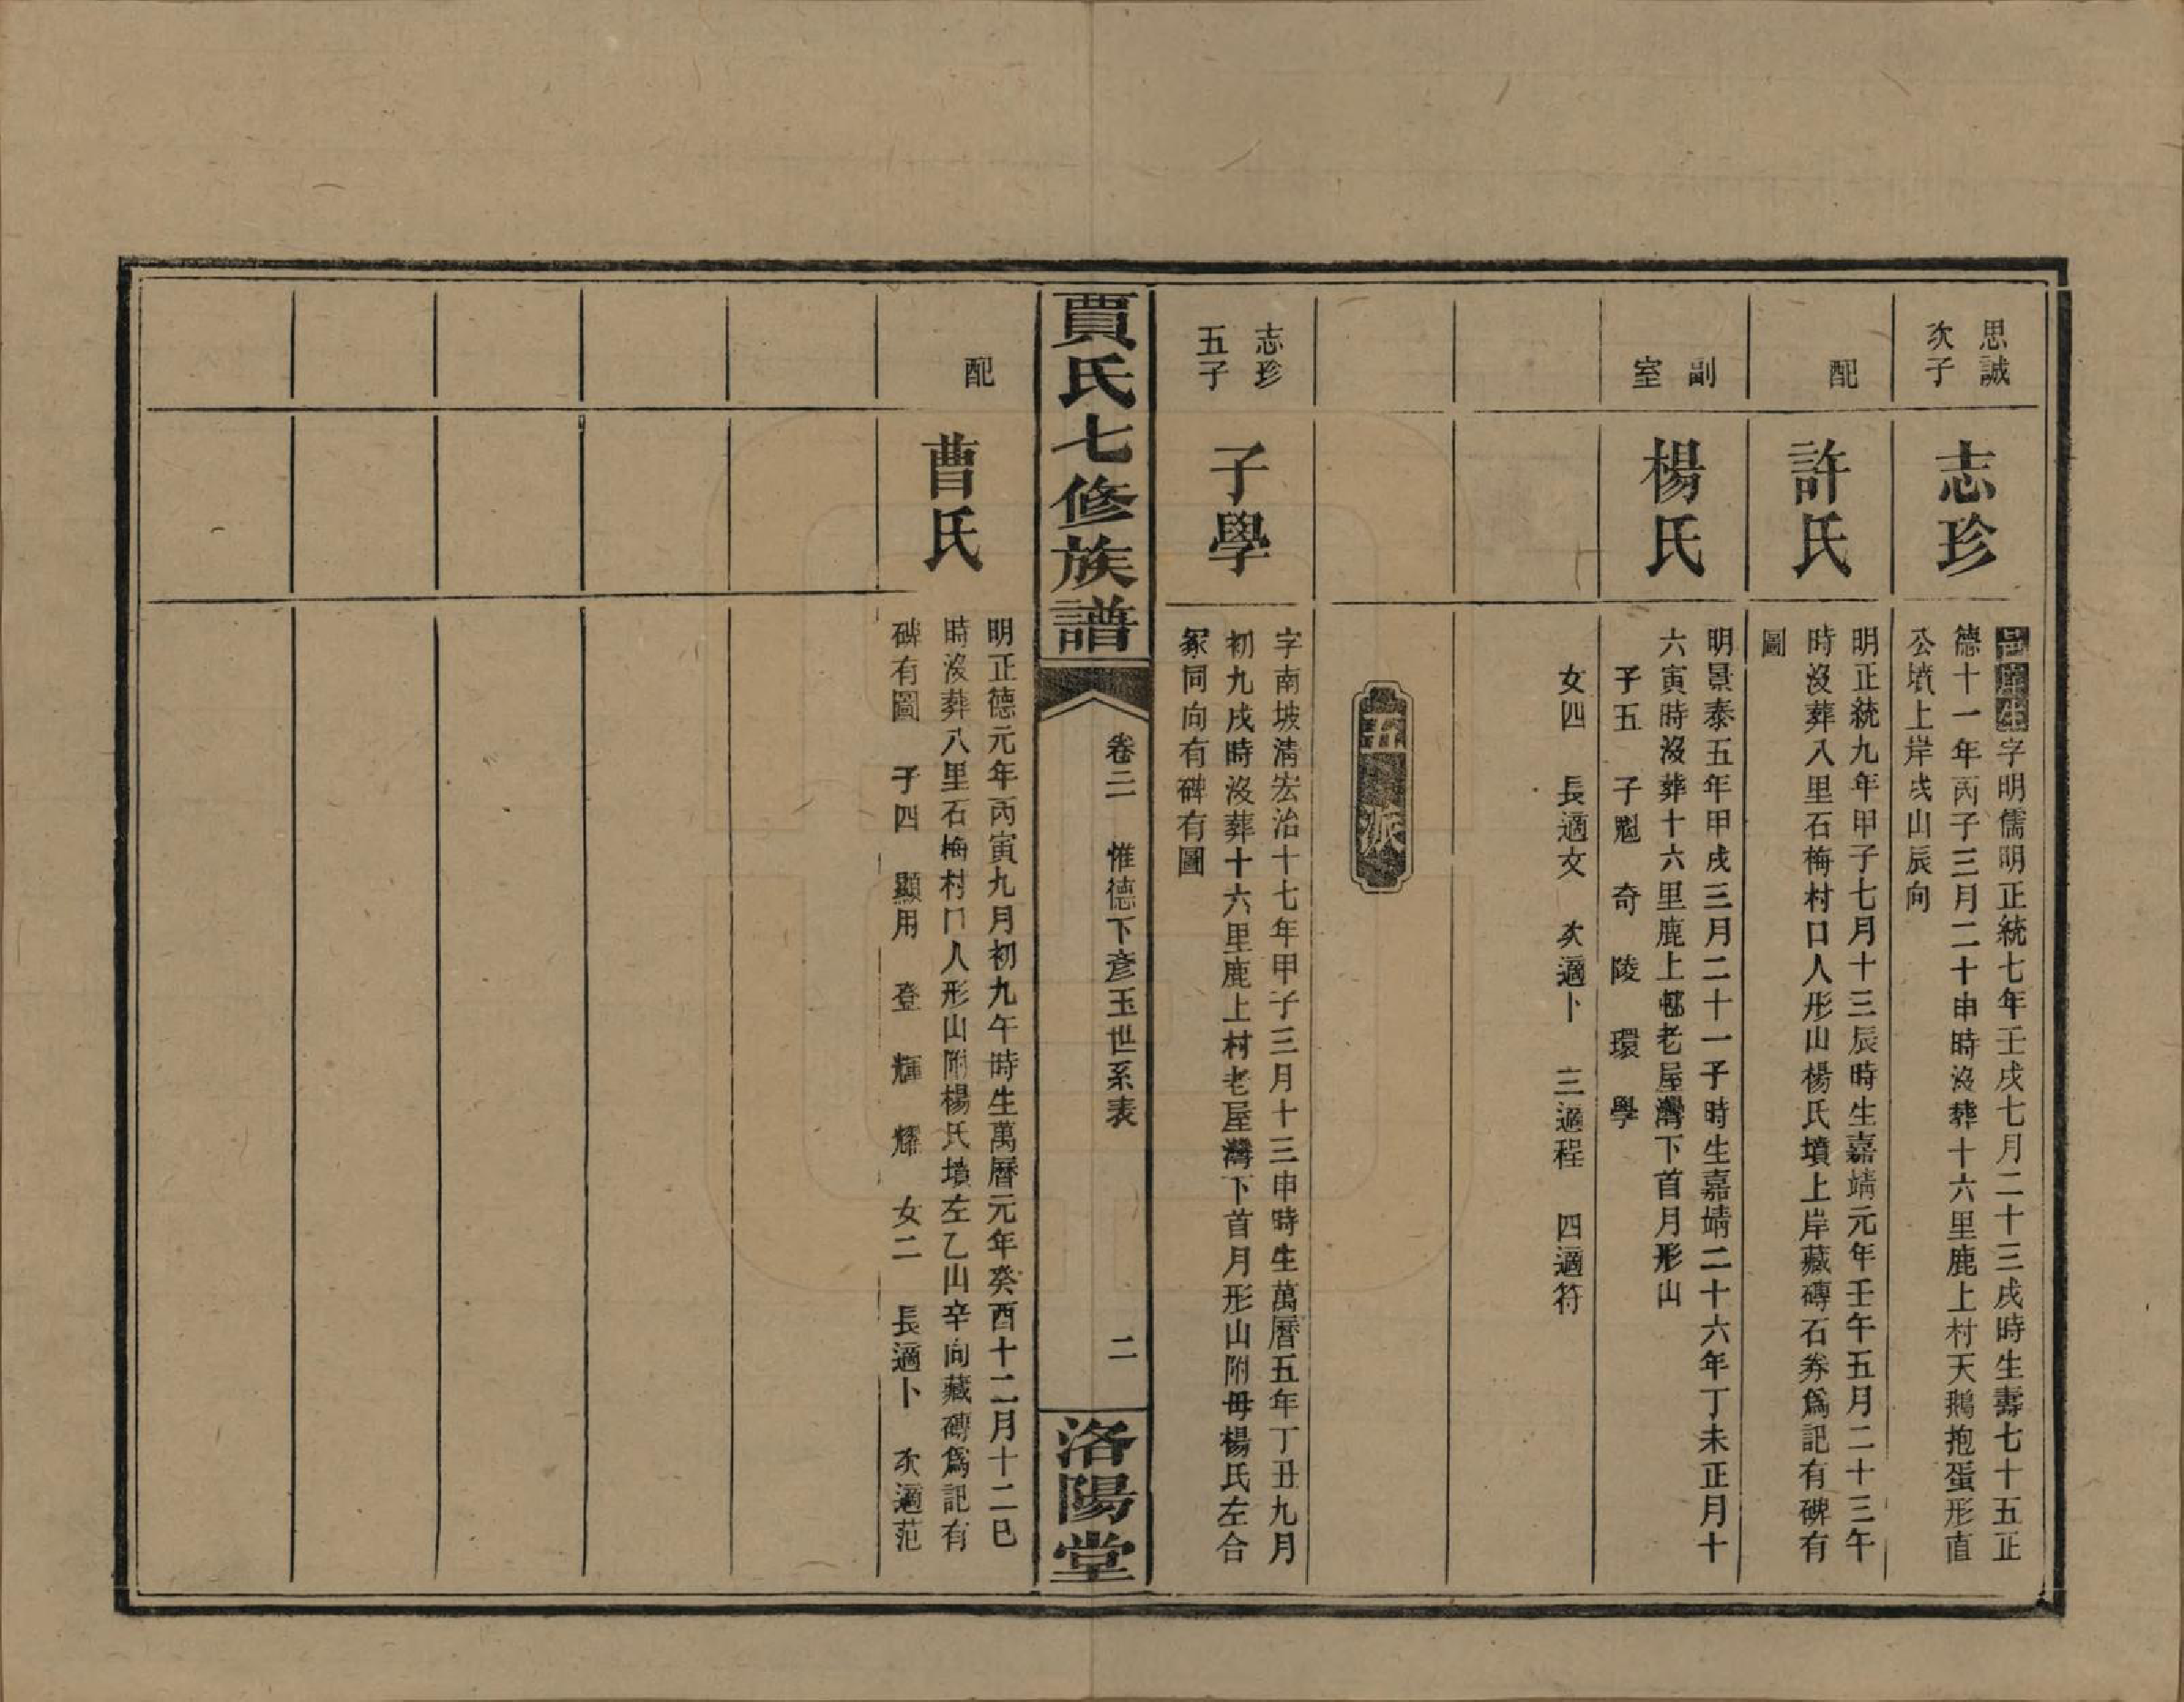 思誠
次子
志珍
邑庠生字明儒明正統七年壬戌七月二十三戌時生壽七十五正
德十一年丙子三月二十申時沒葬十六里鹿上村天鵝抱蛋形直
公墳上岸戌山辰向
配
許氏
明正統九年甲子七月十三辰時生嘉靖元年壬午五月二十三午
時沒葬八里石梅村口人形山楊氏墳上岸藏磚石券爲記有碑有
圖
副
室
楊氏
明景泰五年甲戌三月二十一子時生嘉靖二十六年丁未正月十
六寅時沒葬十六里鹿上邨老屋灣下首月形山
子五 子魁 奇 陵 環 學
女四 長適文 次適卜 三適程 四適符
派
志珍
五子
子學
字南坡淸宏治十七年甲子三月十三申時生萬曆五年丁丑九月
初九戌時沒葬十六里鹿上村老屋灣下首月形山附母楊氏左合
冢同向有碑有圖
賈氏七修族譜
卷二 惟德下彥玉世系表
二
洛陽堂
配
曹氏
明正德元年丙寅九月初九午時生萬曆元年癸酉十二月十二巳
時沒葬八里石梅村口人形山附楊氏墳左乙山辛向藏磚爲記有
碑有圖 子四 顯用 登 輝 耀 女二 長適卜 次適范